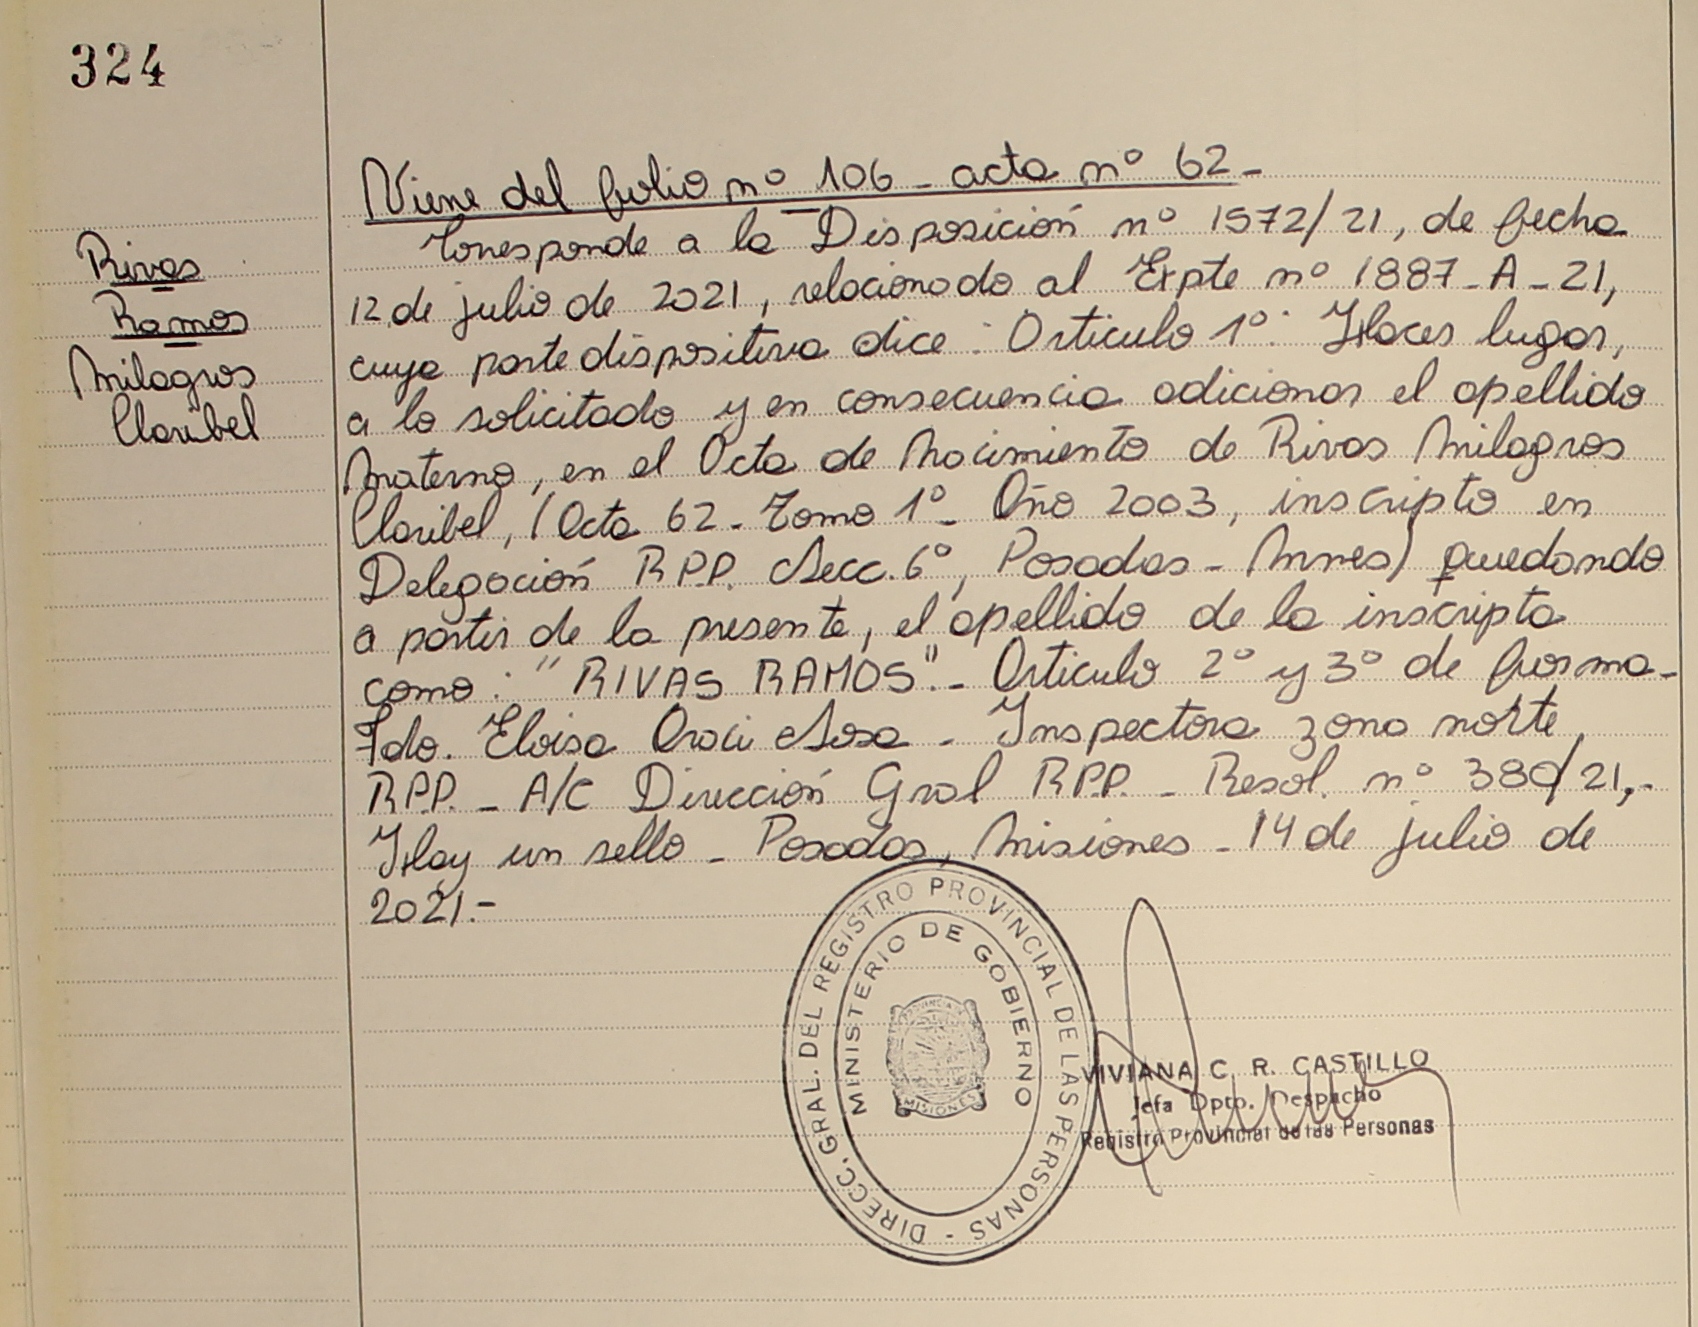 324
Viene del folio nº 106 - acta nº 62 -
Rivas
Ramos
Milagros
Claribel
Corresponde a la Disposición nº 1572/21, de fecha
12 de julio de 2021, relacionado al Expte nº 1887-A-21,
cuya parte dispositiva dice: Articulo 1º: Hacer lugar,
a lo solicitado y en consecuencia adicionar el apellido
materno, en el Acta de Nacimiento de Rivas Milagros
Claribel, (Acta 62 - Tomo 1º - Año 2003, inscripto en
Delegación R.P.P. Secc. 6º, Posadas - Mnes) quedando
a partir de la presente, el apellido de la inscripta
como: "RIVAS RAMOS".- Articulo 2º y 3º de forma -
Fdo. Eloisa Sosa - Inspectora zona norte
R.P.P. - A/C Dirección Gral R.P.P. - Resol. nº 380/21,-
Hay un sello - Posadas, Misiones - 14 de julio de
2021.-
DIRECC. GRAL. DEL REGISTRO PROVINCIAL DE LAS PERSONAS -
MINISTERIO DE GOBIERNO
MISIONES
VIVIANA C. R. CASTILLO
Jefa Dpto. Despacho
Registro Provincial de las Personas